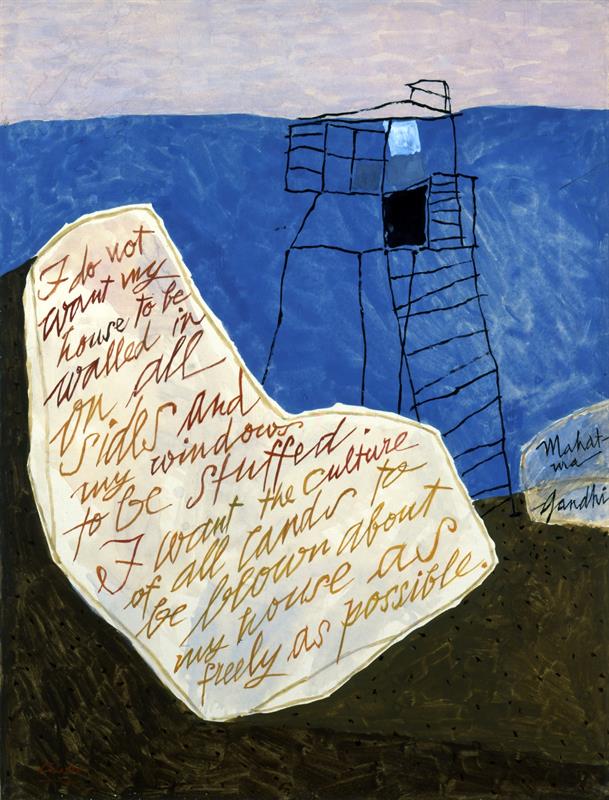 I do not
want my
house to be
walled in
on all
sides and
my windows
to be stuffed.
I want the culture
of all lands to
be blown about
my house as
freely as possible.
Mahat
ma
Gandhi